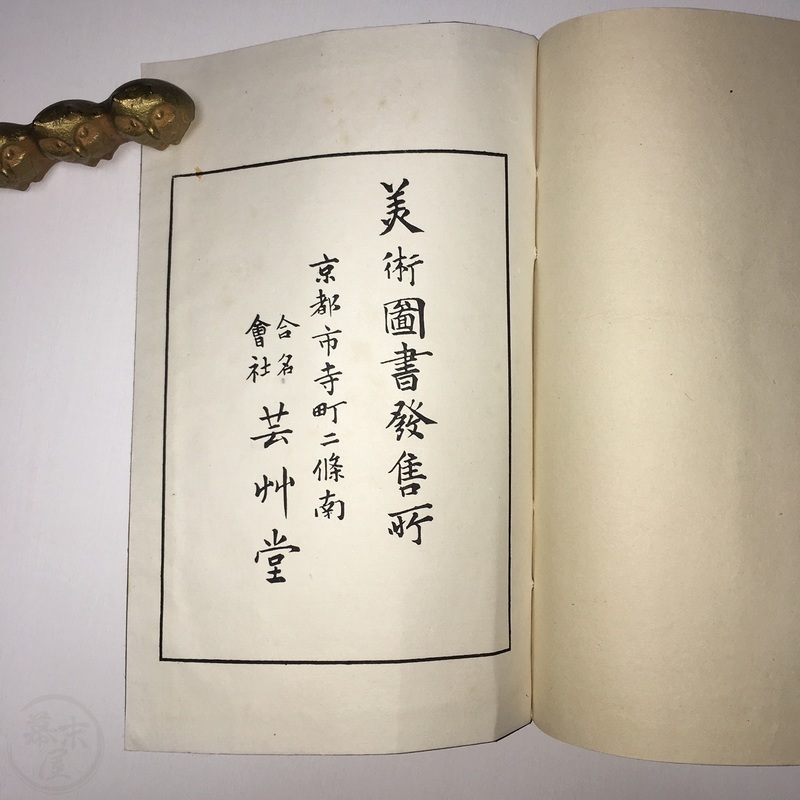 美術圖書發售所
京都市寺町二條南
合名會社 芸艸堂
幕末屋